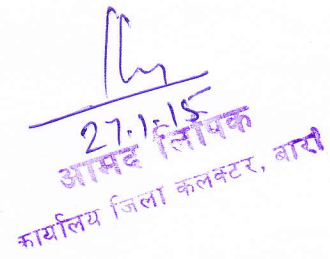 27.1.15
आमद लिपिक
कार्यालय जिला कलक्टर, बारां